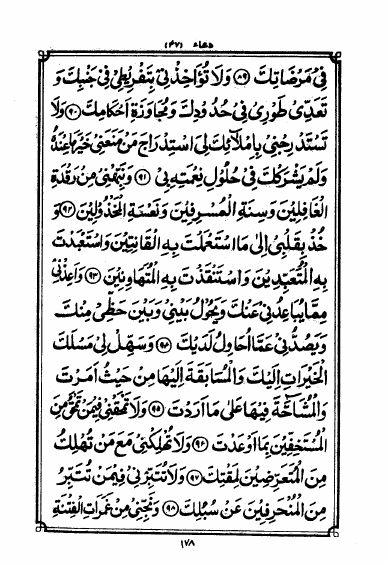 دعاء (٤٧)
فِي مَرْضَاتِكَ ﴿٨٩﴾ وَلَا تُؤَاخِذْنِي بِتَفْرِيطِي فِي جَنْبِكَ وَ
تَعَدِّي طَوْرِي فِي حُدُودِكَ وَمُجَاوَزَةِ أَحْكَامِكَ ﴿٩٠﴾ وَلَا
تَسْتَدْرِجْنِي بِإِمْلَائِكَ لِي اسْتِدْرَاجَ مَنْ مَنَعَنِي خَيْرَ مَا عِنْدَهُ
وَلَمْ يَشْرَكْكَ فِي حُلُولِ نِعْمَتِهِ بِي ﴿٩١﴾ وَنَبِّهْنِي مِنْ رَقْدَةِ
الْغَافِلِينَ وَسِنَةِ الْمُسْرِفِينَ وَنَعْسَةِ الْمَخْذُولِينَ ﴿٩٢﴾ وَ
خُذْ بِقَلْبِي إِلَى مَا اسْتَعْمَلْتَ بِهِ الْقَانِتِينَ وَاسْتَعْبَدْتَ
بِهِ الْمُتَعَبِّدِينَ وَاسْتَنْقَذْتَ بِهِ الْمُتَهَاوِنِينَ ﴿٩٣﴾ وَأَعِذْنِي
مِمَّا يُبَاعِدُنِي عَنْكَ وَيَحُولُ بَيْنِي وَبَيْنَ حَظِّي مِنْكَ
وَيَصُدُّنِي عَمَّا أُحَاوِلُ لَدَيْكَ ﴿٩٤﴾ وَسَهِّلْ لِي مَسْلَكَ
الْخَيْرَاتِ إِلَيْكَ وَالْمُسَابَقَةَ إِلَيْهَا مِنْ حَيْثُ أَمَرْتَ
وَالْمُشَاحَّةَ فِيهَا عَلَى مَا أَرَدْتَ ﴿٩٥﴾ وَلَا تَمْحَقْنِي فِيمَنْ تَمْحَقُ مِنَ
الْمُسْتَخِفِّينَ بِمَا أَوْعَدْتَ ﴿٩٦﴾ وَلَا تُهْلِكْنِي مَعَ مَنْ تُهْلِكُ
مِنَ الْمُتَعَرِّضِينَ لِمَقْتِكَ ﴿٩٧﴾ وَلَا تُتَبِّرْنِي فِيمَنْ تُتَبِّرُ
مِنَ الْمُنْحَرِفِينَ عَنْ سُبُلِكَ ﴿٩٨﴾ وَنَجِّنِي مِنْ غَمَرَاتِ الْفِتْنَةِ
١٧٨